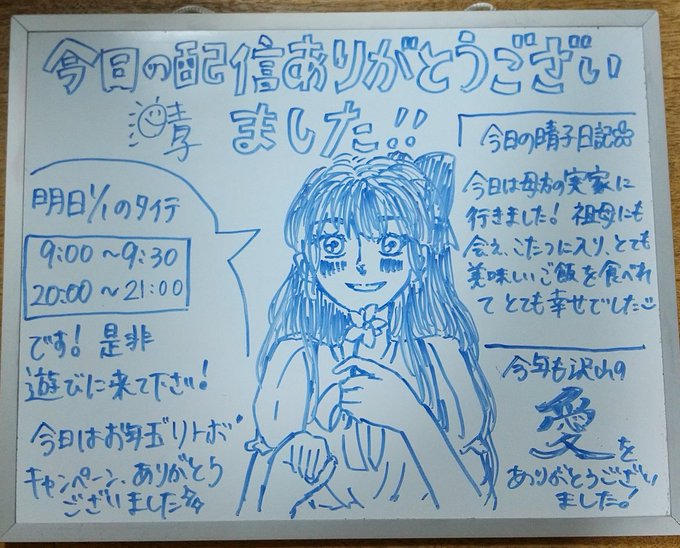 今回の配信ありがとうござい
ました!!
晴子
明日1/1のタイテ
9:00～9:30
20:00～21:00
です! 是非
遊びに来て下さい!
今日はお年玉リトボ
キャンペーン、ありがとう
ございました
今日の晴子日記
今日は母方の実家に
行きました! 祖母にも
会え、こたつに入り、とても
美味しいご飯を食べれ
てとても幸せでした
今年も沢山の
愛を
ありがとうござい
ました!